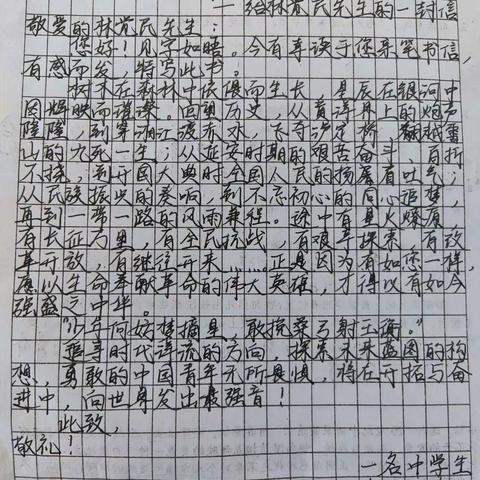 一给林觉民先生的一封信
敬爱的林觉民先生:
您好!见字如晤。今有幸读于您亲笔书信,
有感而发,特写此书!
树木在森林中依偎而生长,星辰在银河中
因辉映而璀璨。回望历史,从黄洋界上的炮声
隆隆,到军湘江渡赤水,飞夺泸定桥,翻越雪
山的九死一生;从延安时期的艰苦奋斗、百折
不挠,到开国大典时全国人民的扬眉吐气;
从民族振兴的奏响,到不忘初心的同心追梦,
再到一带一路的风雨兼程。途中有星火燎原,
有长征万里,有全民抗战,有艰辛探索,有改
革开放,有继往开来……正是因为有如您一样,
愿以生命奉献革命的伟大英雄,才得以有如今
强盛之中华。
"少年何妨梦摘星,敢挽桑弓射玉衡。"
追寻时代洋流的方向,探索未来蓝图的构
想,勇敢的中国青年无所畏惧,将在开拓与奋
进中,向世界发出最强音!
此致,
敬礼!
一名中学生